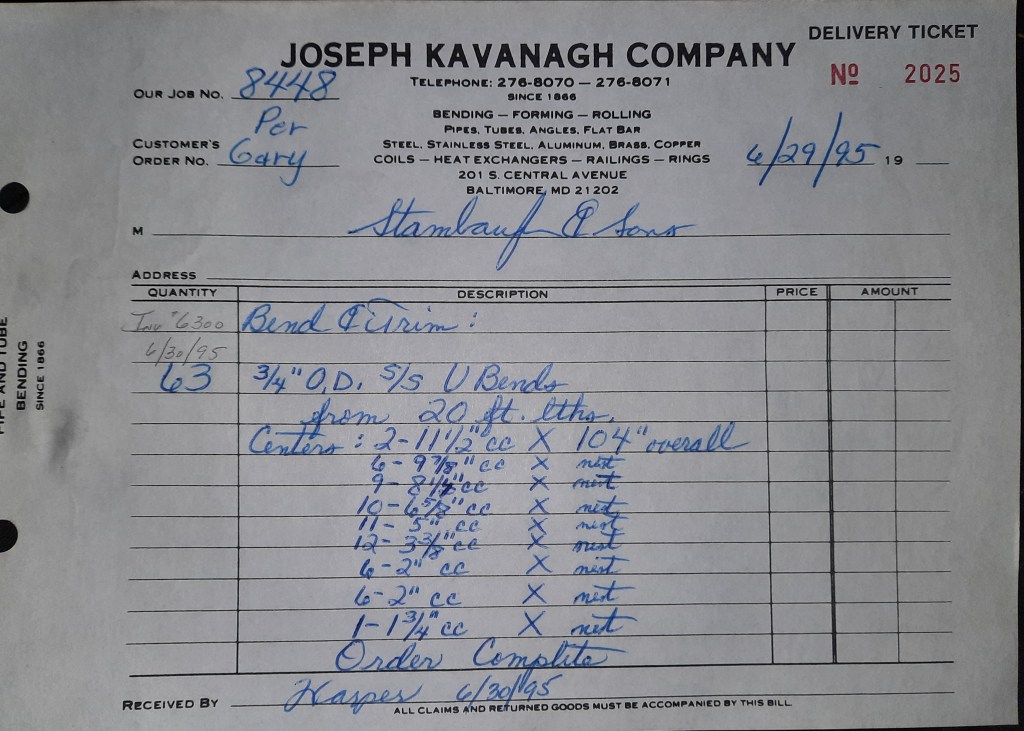 DELIVERY TICKET
JOSEPH KAVANAGH COMPANY
Nº 2025
TELEPHONE: 276-8070 — 276-8071
SINCE 1866
OUR JOB NO. 8448
BENDING — FORMING — ROLLING
PIPES, TUBES, ANGLES, FLAT BAR
Per
CUSTOMER'S
ORDER NO. Gary
STEEL, STAINLESS STEEL, ALUMINUM, BRASS, COPPER
COILS — HEAT EXCHANGERS — RAILINGS — RINGS
6/29/95 19
201 S. CENTRAL AVENUE
BALTIMORE, MD 21202
M Stambaugh & Sons
ADDRESS
QUANTITY DESCRIPTION PRICE AMOUNT
Inv #6300 Bend & Trim:
6/30/95
63 3/4" O.D. S/S U Bends
from 20 ft. lths.
Centers: 2-11 1/2" cc X 104" overall
6-9 7/8" cc X nest
9-8 1/4" cc X nest
10-6 5/8" cc X nest
11-5" cc X nest
12-3 3/8" cc X nest
6-2" cc X nest
6-2" cc X nest
1-1 3/4" cc X nest
Order Complete
RECEIVED BY Harper 6/30/95
ALL CLAIMS AND RETURNED GOODS MUST BE ACCOMPANIED BY THIS BILL
PIPE AND TUBE
BENDING
SINCE 1866